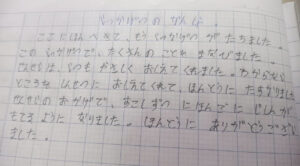 しゃかいつの せんせい。
ここに はんぺきて、もう しゃかげつが たちました。
この しゃかげつで、たくさんの ことを まなびました。
せんせいは、いつも やさしく おしえて くれました。わからない
ところを しんせつに おしえて くれて、ほんとうに たすかりました
せんせいの おかげで、すこしずつ にほんごに じしんが
もてる ように なりました。ほんとうに ありがとうござい
ました。